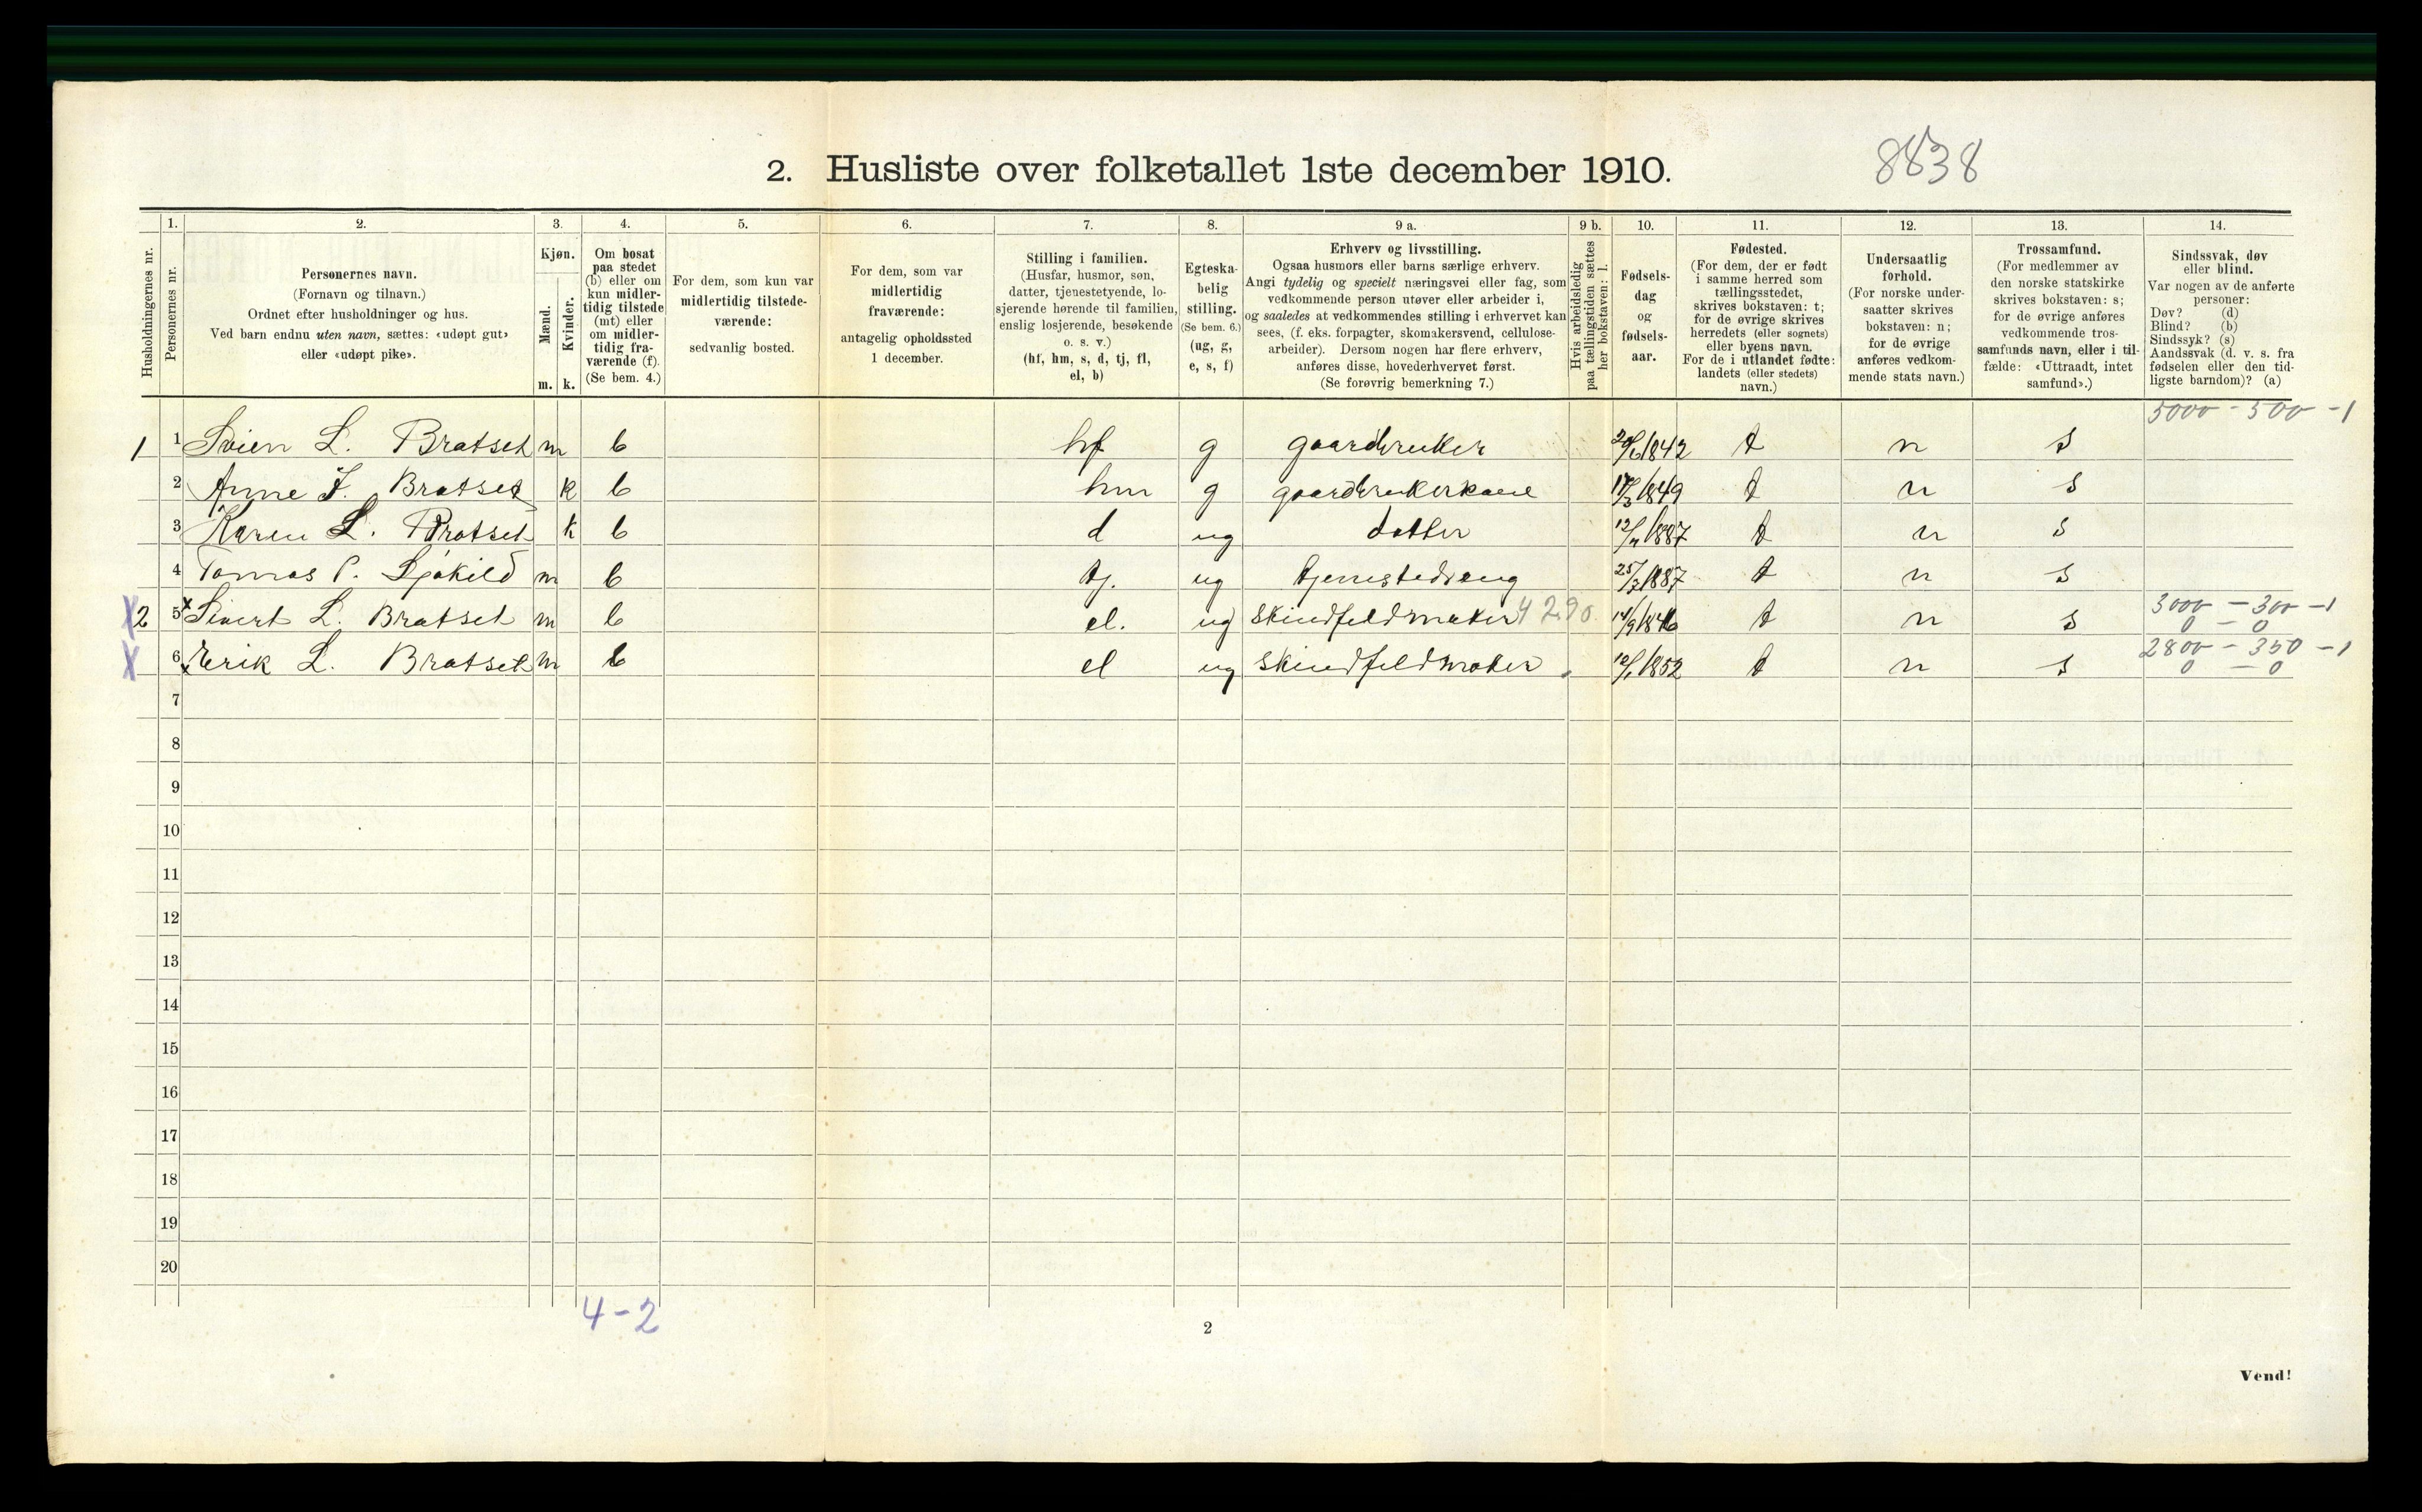 2. Husliste over folketallet 1ste december 1910.
8838
Husholdningernes nr.
1. Personernes nr.
2. Personernes navn.
(Fornavn og tilnavn.)
Ordnet efter husholdninger og hus.
Ved barn endnu uten navn, sættes: «udøpt gut»
eller «udøpt pike».
3. Kjøn.
Mænd. Kvinder.
m. k.
4. Om bosat
paa stedet
(b) eller om
kun midler-
tidig tilstede
(mt) eller
om midler-
tidig fra-
værende (f).
(Se bem. 4.)
5. For dem, som kun var
midlertidig tilstede-
værende:
sedvanlig bosted.
6. For dem, som var
midlertidig
fraværende:
antagelig opholdssted
1 december.
7. Stilling i familien.
(Husfar, husmor, søn,
datter, tjenestetyende, lo-
sjerende hørende til familien,
enslig losjerende, besøkende
o. s. v.)
(hf, hm, s, d, tj, fl,
el, b)
8. Egteska-
belig
stilling.
(Se bem. 6.)
(ug, g,
e, s, f)
9 a. Erhverv og livsstilling.
Ogsaa husmors eller barns særlige erhverv.
Angi tydelig og specielt næringsvei eller fag, som
vedkommende person utøver eller arbeider i,
og saaledes at vedkommendes stilling i erhvervet kan
sees, (f. eks. forpagter, skomakersvend, cellulose-
arbeider). Dersom nogen har flere erhverv,
anføres disse, hovederhvervet først.
(Se forøvrig bemerkning 7.)
9 b. Hvis arbeidsledig
paa tællingstiden sættes
her bokstaven: l.
10. Fødsels-
dag
og
fødsels-
aar.
11. Fødested.
(For dem, der er født
i samme herred som
tællingsstedet,
skrives bokstaven: t;
for de øvrige skrives
herredets (eller sognets)
eller byens navn.
For de i utlandet fødte:
landets (eller stedets)
navn.)
12. Undersaatlig
forhold.
(For norske under-
saatter skrives
bokstaven: n;
for de øvrige
anføres vedkom-
mende stats navn.)
13. Trossamfund.
(For medlemmer av
den norske statskirke
skrives bokstaven: s;
for de øvrige anføres
vedkommende tros-
samfunds navn, eller i til-
fælde: «Uttraadt, intet
samfund».)
14. Sindssvak, døv
eller blind.
Var nogen av de anførte
personer:
Døv? (d)
Blind? (b)
Sindssyk? (s)
Aandssvak (d. v. s. fra
fødselen eller den tid-
ligste barndom)? (a)
5000 - 500 - 1
1 1 Svien L. Bratset m b hf g gaardbruker 1842 t n s
2 Anne J. Bratset k b hm g gaardbrukerkone 1849 t n s
3 Karen L. Bratset k b d ug datter 1887 t n s
4 Tomas P. Sjøkild m b tj. ug tjenestedreng 25/3 1887 t n s
3000 - 300 - 1
X 2 5 x Sivert L. Bratset m b el. ug skindfeldmaker 4290 14/9 1846 t n s 0 - 0
2800 - 350 - 1
X 6 x Erik L. Bratset m b el ug skindfeldmaker 12/1 1852 t n s 0 - 0
7
8
9
10
11
12
13
14
15
16
17
18
19
20
4-2
2
Vend!